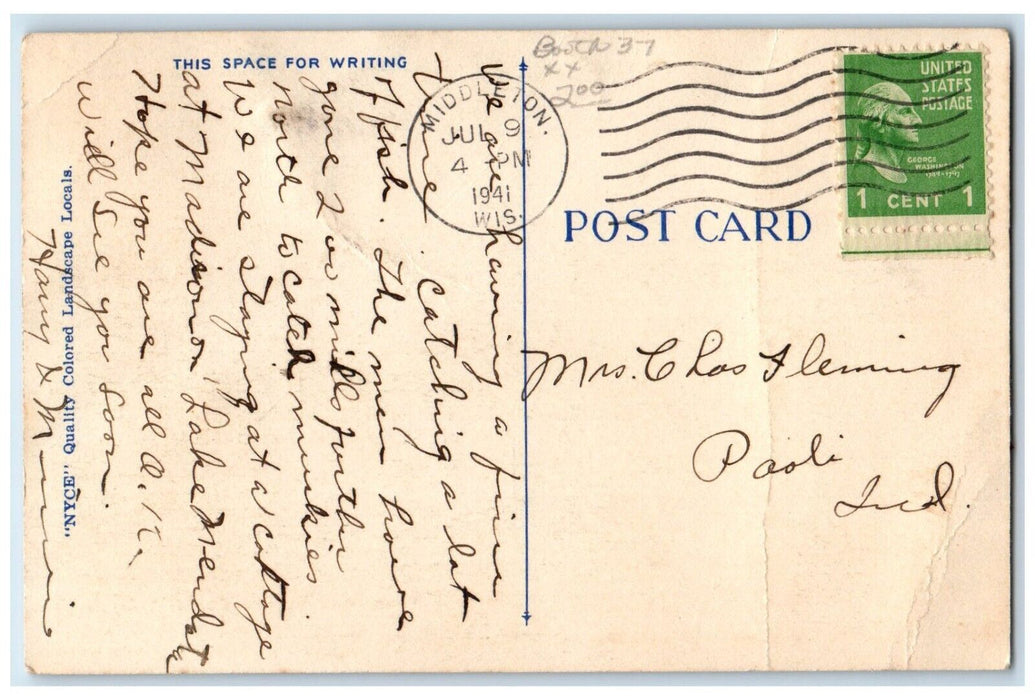 THIS SPACE FOR WRITING
We are having a fine
time. Catching a lot
of fish. The men have
gone 200 miles further
north to catch muskies.
We are staying at a cottage
at Madison, Lake Mendota
Hope you are all O.K.
Will see you soon.
Harry &
"NYCE" Quality Colored Landscape Locals.
Booth 37
XX
200
MIDDLETON.
JUL 9
4 PM
1941
WIS.
UNITED
STATES
POSTAGE
GEORGE
WASHINGTON
1 CENT 1
POST CARD
Mrs. Chas Fleming
Paoli
Ind.